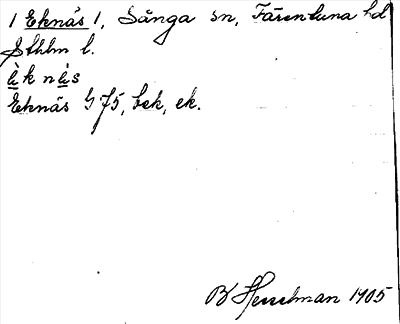 1 Eknäs 1, Sånga sn, Färentuna hd
Sthlm l.
èk nès
Eknäs G 75, bek, ek.
B Hesselman 1905